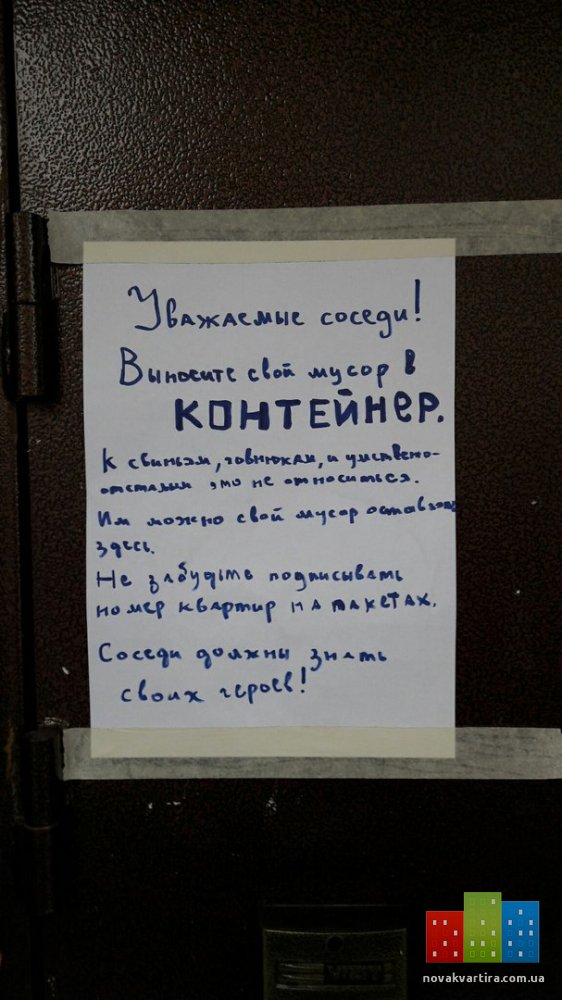 Уважаемые соседи!
Выносите свой мусор в
КОНТЕЙНЕР.
К свиньям, говнюкам, и умствено-
отсталым это не относиться.
Им можно свой мусор оставлять
здесь.
Не забудьте подписывать
номер квартир на пакетах.
Соседи должны знать
своих героев!
novakvartira.com.ua